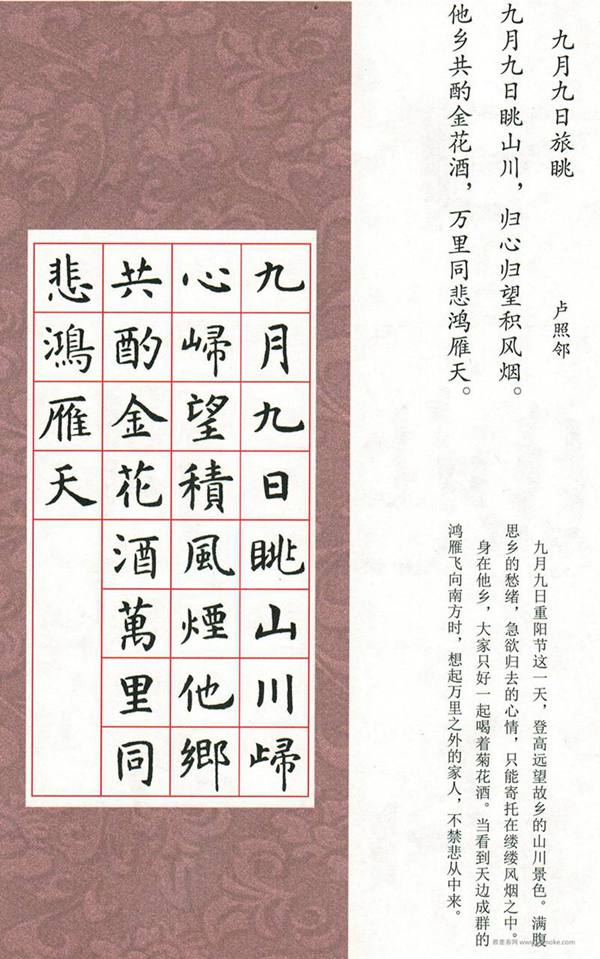 九月九日旅眺
卢照邻
九月九日眺山川，归心归望积风烟。
他乡共酌金花酒，万里同悲鸿雁天。
九月九日重阳节这一天，登高远望故乡的山川景色。满腹
思乡的愁绪，急欲归去的心情，只能寄托在缕缕风烟之中。
身在他乡，大家只好一起喝着菊花酒。当看到天边成群的
鸿雁飞向南方时，想起万里之外的家人，不禁悲从中来。
九月九日眺山川㱕
心㱕望積風煙他鄉
共酌金花酒萬里同
悲鴻雁天